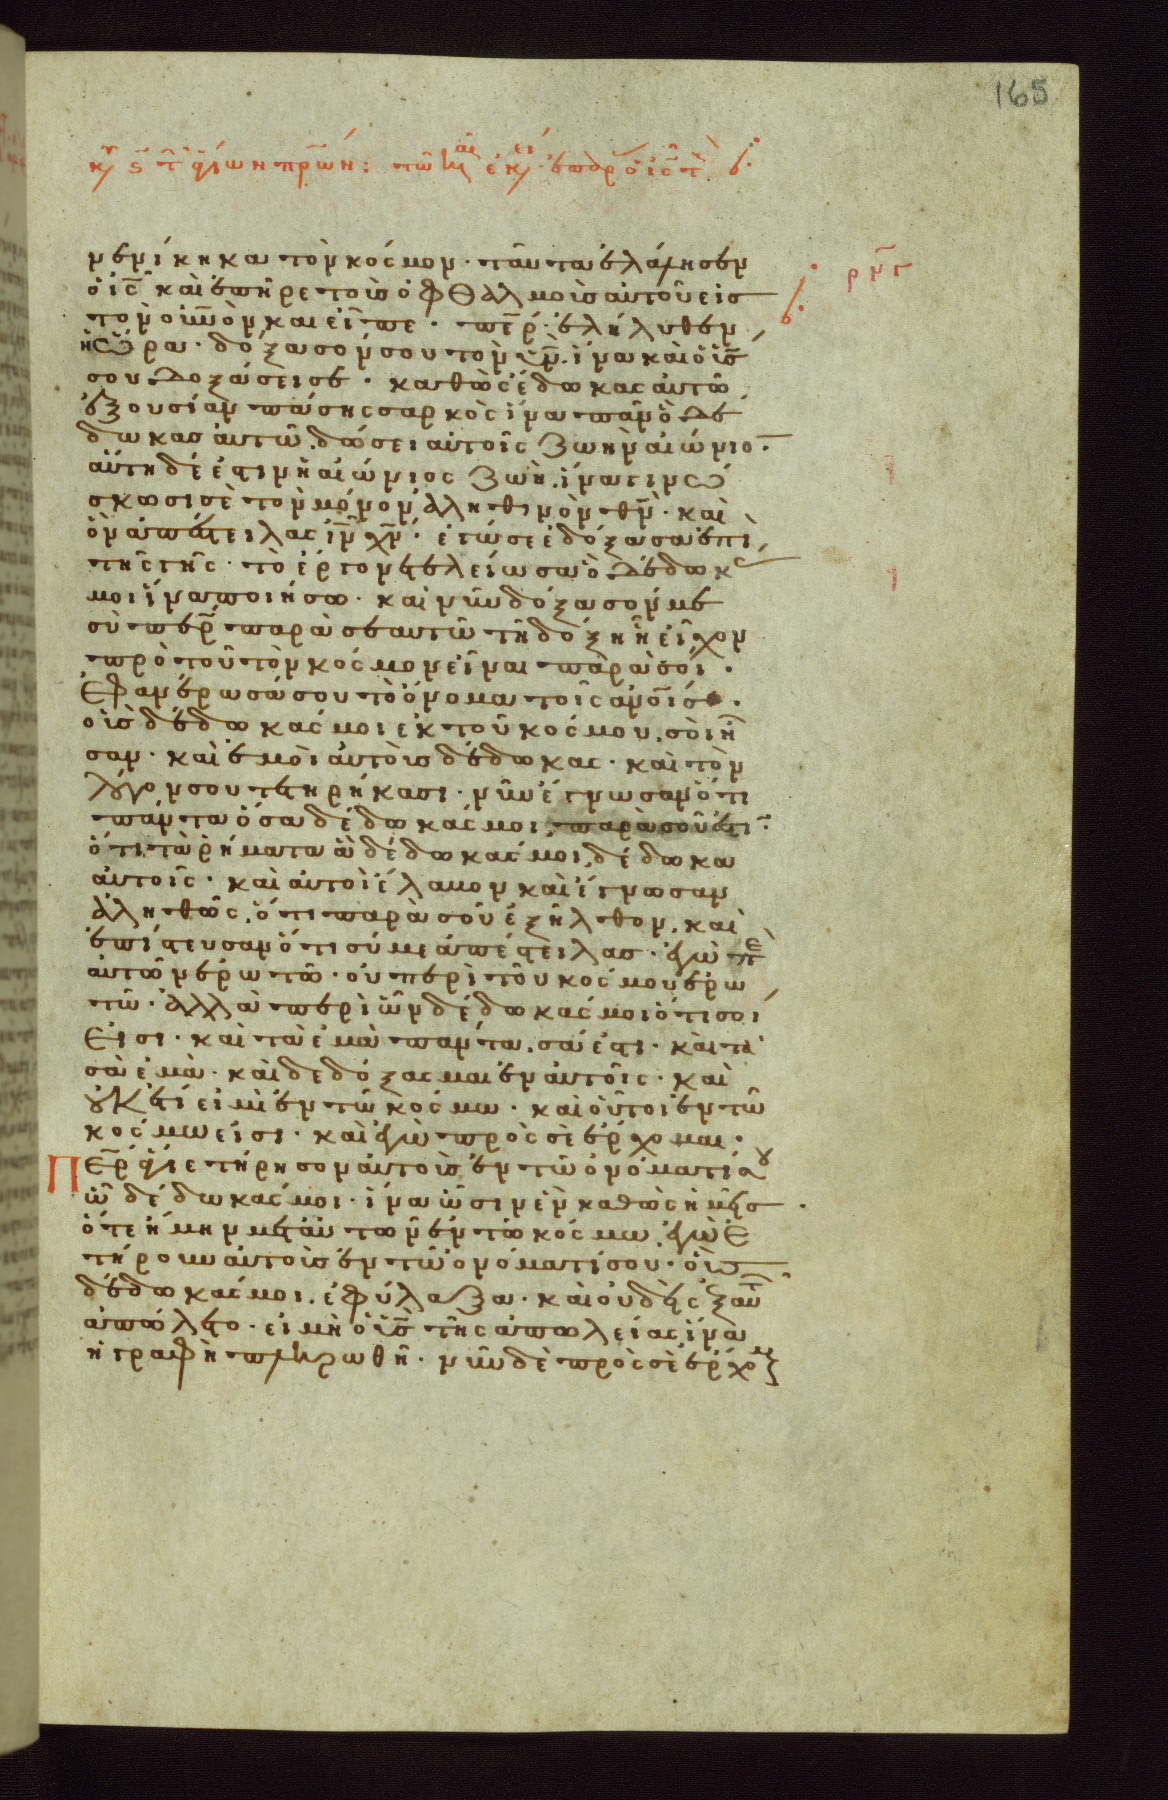 165
κυ ϛ τ ἁγίων πρων: τω και εκει επαρ ο ις τ
ρνγ
νενίκηκα τὸν κόσμον· ταῦτα ἐλάλησεν
ὁ ις καὶ ἐπῆρε τοὺς ὀφθαλμοὺς αὐτοῦ εἰς
τὸν οὐνὸν καὶ εἶπε· περ ἐλήλυθεν
ἡ ὥρα· δόξασόν σου τὸν υν ἵνα καὶ ὁ υς
σου δοξάσει σε· καθὼς ἔδωκας αὐτῶ
ἐξουσίαν πάσης σαρκὸς ἵνα πᾶν ὃ δέ
δωκας αὐτῶ δώσει αὐτοῖς ζωὴν αἰώνιο·
αὕτη δέ ἐστιν ἡ αἰώνιος ζωὴ ἵνα γινώ
σκωσι σὲ τὸν μόνον ἀληθινὸν θν· καὶ
ὃν ἀπέστειλας ιν χν· ἐγώ σε ἐδόξασα ἐπὶ
τῆς γῆς· τὸ ἔργον ἐτελείωσα ὃ δέδωκ
μοι ἵνα ποιήσω· καὶ νῦν δόξασόν με
σὺ περ παρὰ σεαυτῶ τῆ δόξη ἧ εἶχον
πρὸ τοῦ τὸν κόσμον εἶναι παρὰ σοί·
Ἐφανέρωσά σου τὸ ὄνομα τοῖς ανοις·
οὓς δέδωκάς μοι ἐκ τοῦ κόσμου. σοὶ ἦ
σαν· καὶ ἐμοὶ αὐτοὺς δέδωκας· καὶ τὸν
λόγον σου τετηρήκασι· νῦν ἔγνωσαν ὅτι
πάντα ὅσα δέδωκάς μοι παρὰ σοῦ ἐστι·
ὅτι τὰ ρήματα ἃ δέδωκάς μοι, δέδωκα
αὐτοῖς· καὶ αὐτοὶ ἔλαβον καὶ ἔγνωσαν
ἀληθῶς, ὅτι παρὰ σοῦ ἐξῆλθον, καὶ
ἐπίστευσαν ὅτι σύ με ἀπέστειλας· ἐγὼ πε
αὐτῶν ἐρωτῶ· οὐ περὶ τοῦ κόσμου ἐρω
τῶ· ἀλλὰ περὶ ὧν δέδωκάς μοι ὅτι σοί
εἰσι· καὶ τὰ ἐμὰ πάντα. σά ἐστι· καὶ τὰ
σὰ ἐμὰ· καὶ δεδόξασμαι ἐν αὐτοῖς· καὶ
οὐκ ἔτι εἰμὶ ἐν τῶ κόσμω· καὶ οὗτοι ἐν τῶ
κόσμω εἰσι· καὶ ἐγὼ πρὸς σὲ ἔρχομαι·
Περ ἅγιε τήρησον αὐτοὺς ἐν τῶ ὀνόματί σου
ὧ δέδωκάς μοι· ἵνα ὦσιν ἓν καθὼς ἡμεῖς·
ὅτε ἤμην μετ' αὐτῶν ἐν τῶ κόσμω, ἐγὼ ἐ
τήρουν αὐτοὺς ἐν τῶ ὀνόματί σου· οὓς
δέδωκάς μοι. ἐφύλαξα· καὶ οὐδεὶς ἐξ αὐτ
ἀπώλετο· εἰ μὴ ὁ υς τῆς ἀπωλείας ἵνα
ἡ γραφὴ πληρωθῆ· νῦν δὲ πρὸς σὲ ἔρχομ